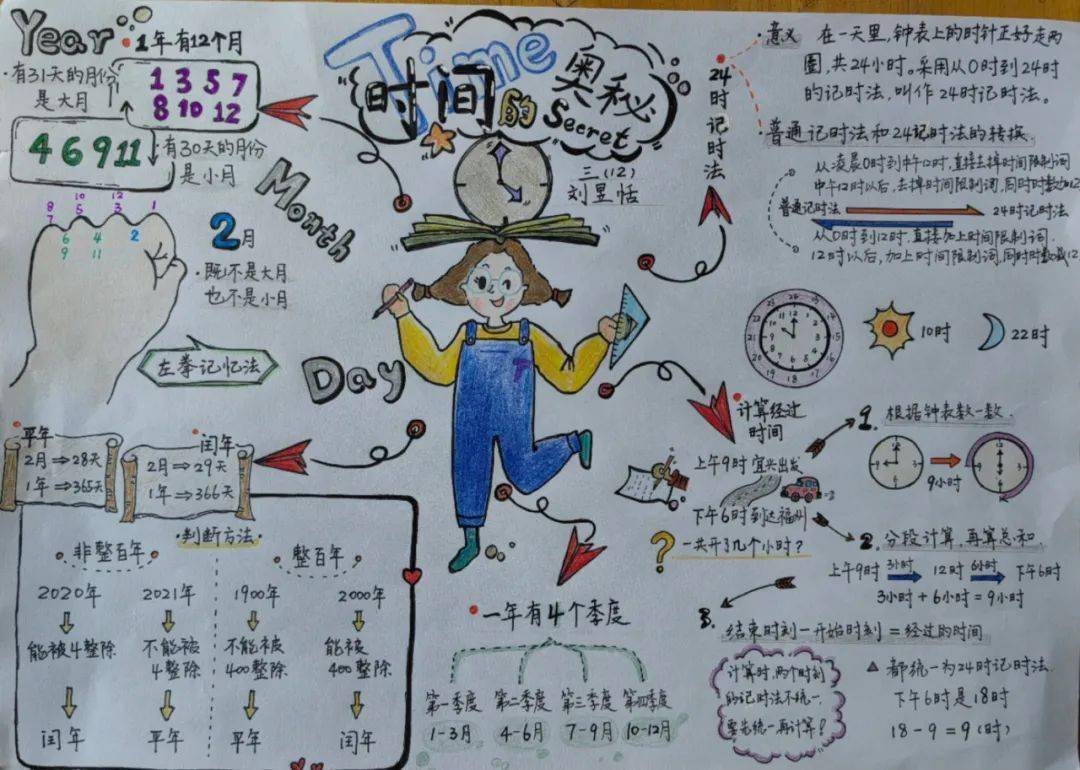 Year
1年有12个月
有31天的月份
是大月
1 3 5 7
8 10 12
4 6 9 11
有30天的月份
是小月
Month
10 12
8 5 3 1
7
6 4 2
9 11
2月
既不是大月
也不是小月
左拳记忆法
Day
平年
2月⇒28天
1年⇒365天
闰年
2月⇒29天
1年⇒366天
判断方法
非整百年
整百年
2020年 2021年 1900年 2000年
能被4整除
不能被
4整除
不能被
400整除
能被
400整除
闰年 平年 平年 闰年
Time
时间的奥秘
Secret
三(12)
刘昱恬
一年有4个季度
第一季度 第二季度 第三季度 第四季度
1-3月 4-6月 7-9月 10-12月
24时记时法
意义
在一天里,钟表上的时针正好走两
圈,共24小时。采用从0时到24时
的记时法,叫作24时记时法。
普通记时法和24记时法的转换
从凌晨0时到中午12时,直接去掉时间限制词
中午12时以后,去掉时间限制词,同时时数加12
普通记时法 24时记时法
从0时到12时,直接加上时间限制词.
12时以后,加上时间限制词,同时时数减12
10时
22时
计算经过
时间
上午9时宜兴出发
下午6时到达福州
一共开了几个小时?
1. 根据钟表数一数.
9小时
2. 分段计算,再算总和.
上午9时 3小时 12时 6小时 下午6时
3小时+6小时=9小时
3. 结束时刻-开始时刻=经过的时间
计算时,两个时刻
的记时法不统一,
要先统一再计算!
都统一为24时记时法
下午6时是18时
18-9=9(时)